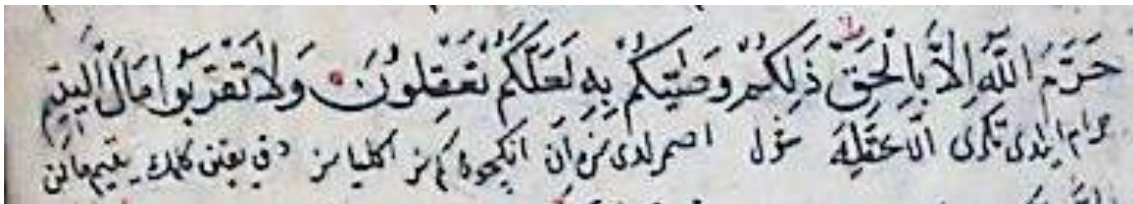 حَرَّمَ اللّٰهُ اِلاَّ بِالْحَقِّ ذَلِكُمْ وَصّٰيكُمْ بِهِ لَعَلَّكُمْ تَعْقِلُونَ وَلاَ تَقْرَبُوا مَالَ الْيَتِيمِ
حرام ايلدى تكرى الا حقله شول اصمرلدى سزه انى كم سز اكلياسز دخى يقين كلمك يتيم مالن